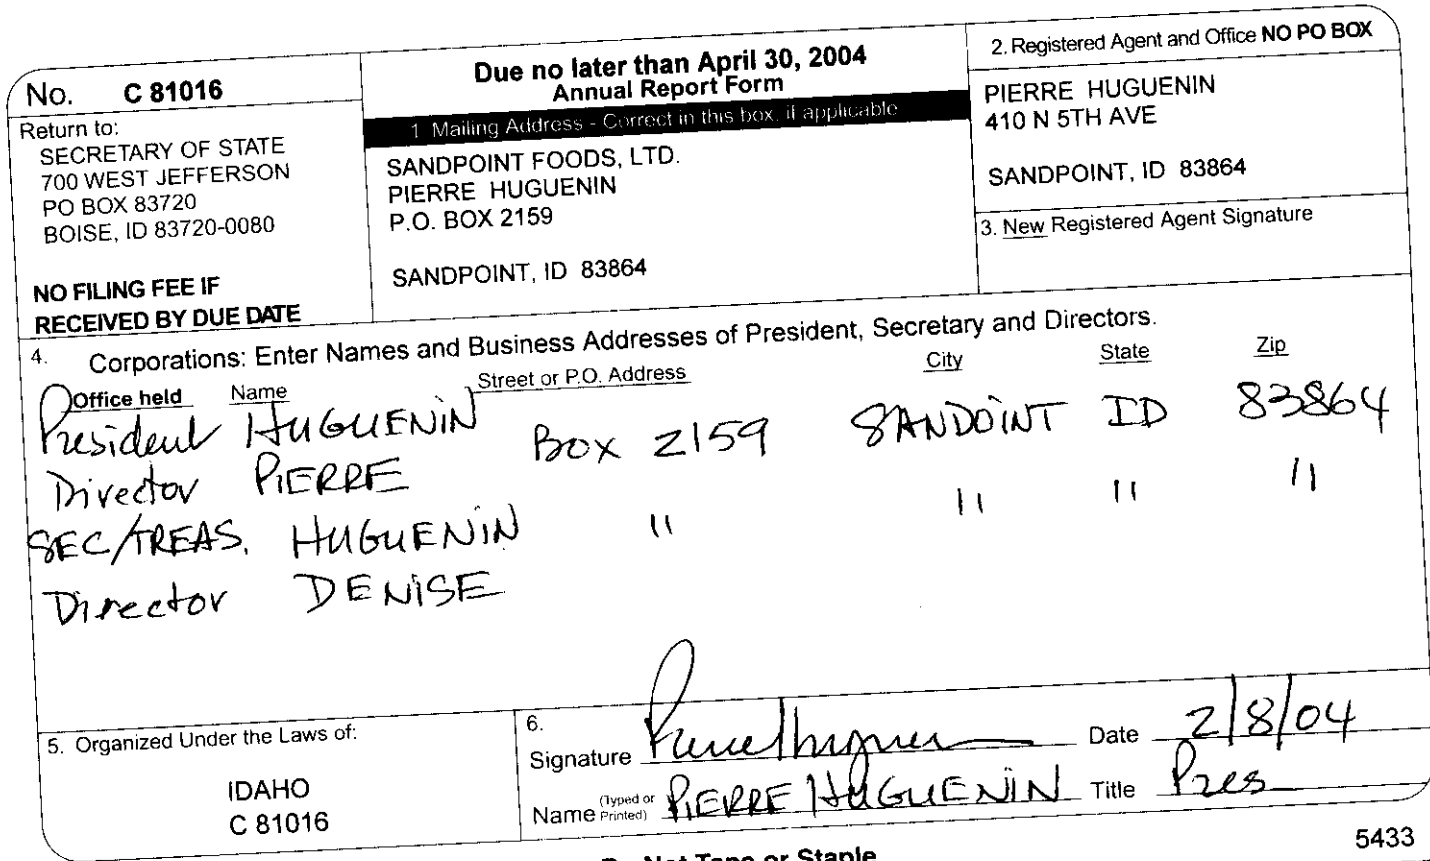 No. C 81016
Return to:
SECRETARY OF STATE
700 WEST JEFFERSON
PO BOX 83720
BOISE, ID 83720-0080
NO FILING FEE IF
RECEIVED BY DUE DATE
Due no later than April 30, 2004
Annual Report Form
1 Mailing Address - Correct in this box, if applicable
SANDPOINT FOODS, LTD.
PIERRE HUGUENIN
P.O. BOX 2159
SANDPOINT, ID 83864
2. Registered Agent and Office NO PO BOX
PIERRE HUGUENIN
410 N 5TH AVE
SANDPOINT, ID 83864
3. New Registered Agent Signature
4. Corporations: Enter Names and Business Addresses of President, Secretary and Directors.
Office held Name Street or P.O. Address City State Zip
President HUGUENIN Box 2159 SANDOINT ID 83864
Director PIERRE
SEC/TREAS. HUGUENIN " " " "
Director DENISE
5. Organized Under the Laws of:
IDAHO
C 81016
6.
Signature Date 2/8/04
Name (Typed or Printed) PIERRE HUGUENIN Title Pres
Do Not Tape or Staple
5433